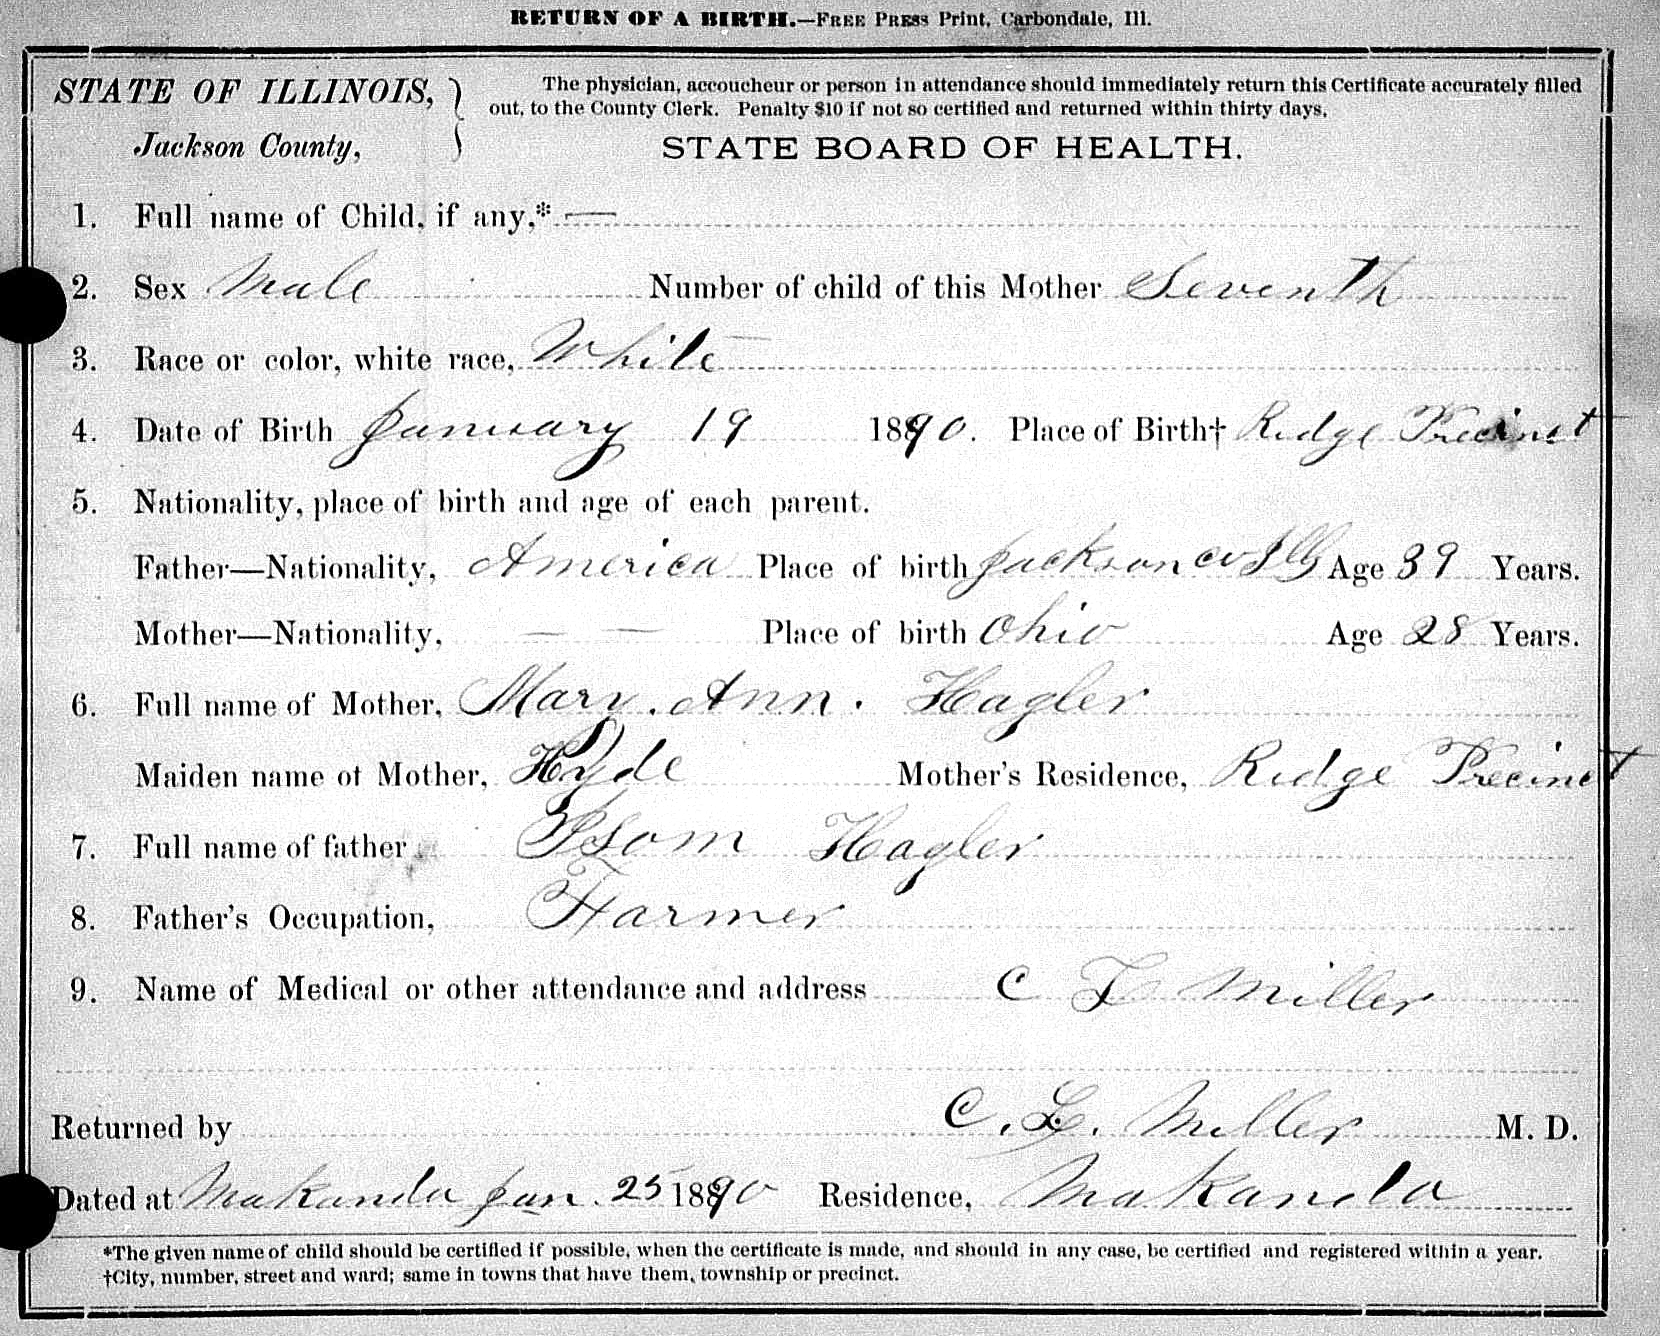 RETURN OF A BIRTH.—FREE PRESS Print, Carbondale, Ill.
STATE OF ILLINOIS,
Jackson County,
The physician, accoucheur or person in attendance should immediately return this Certificate accurately filled
out, to the County Clerk. Penalty $10 if not so certified and returned within thirty days.
STATE BOARD OF HEALTH.
1. Full name of Child, if any,* —
2. Sex Male Number of child of this Mother Seventh
3. Race or color, white race, White
4. Date of Birth January 19 1890. Place of Birth† Ridge Precinct
5. Nationality, place of birth and age of each parent.
Father—Nationality, America Place of birth Jackson co Ills Age 39 Years.
Mother—Nationality, — — Place of birth Ohio Age 28 Years.
6. Full name of Mother, Mary. Ann. Hagler
Maiden name of Mother, Hyde Mother's Residence, Ridge Precinct
7. Full name of father Hagler
8. Father's Occupation, Farmer
9. Name of Medical or other attendance and address C L Miller
Returned by C. L. Miller M. D.
Dated at Makanda Jan. 25 1890 Residence, Makanda
*The given name of child should be certified if possible, when the certificate is made, and should in any case, be certified and registered within a year.
†City, number, street and ward; same in towns that have them, township or precinct.